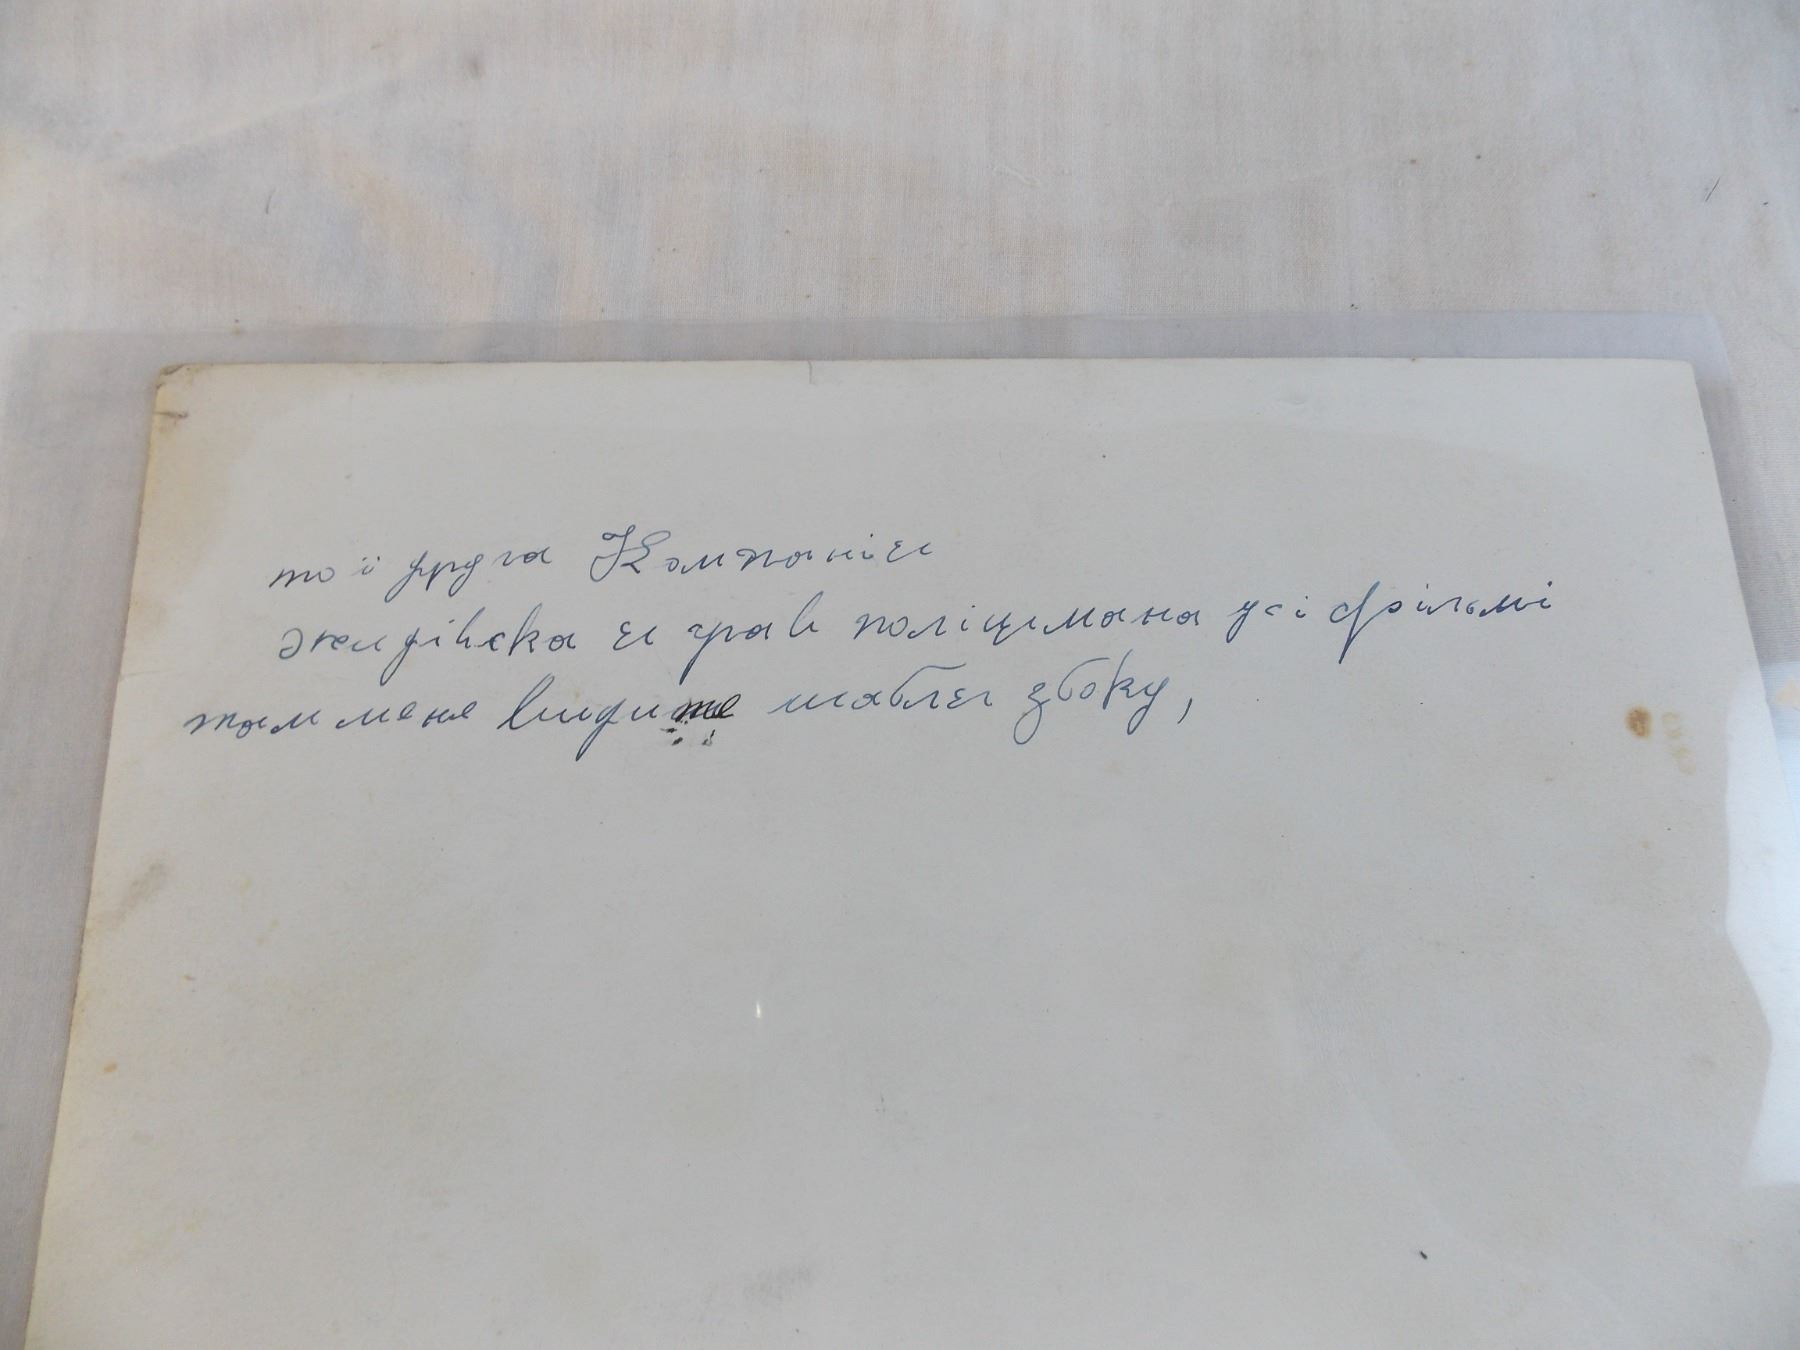 то ї друга Компанія
жидівска я грав поліцимана у сі фільмі
там мене видите шаблєі збоку,